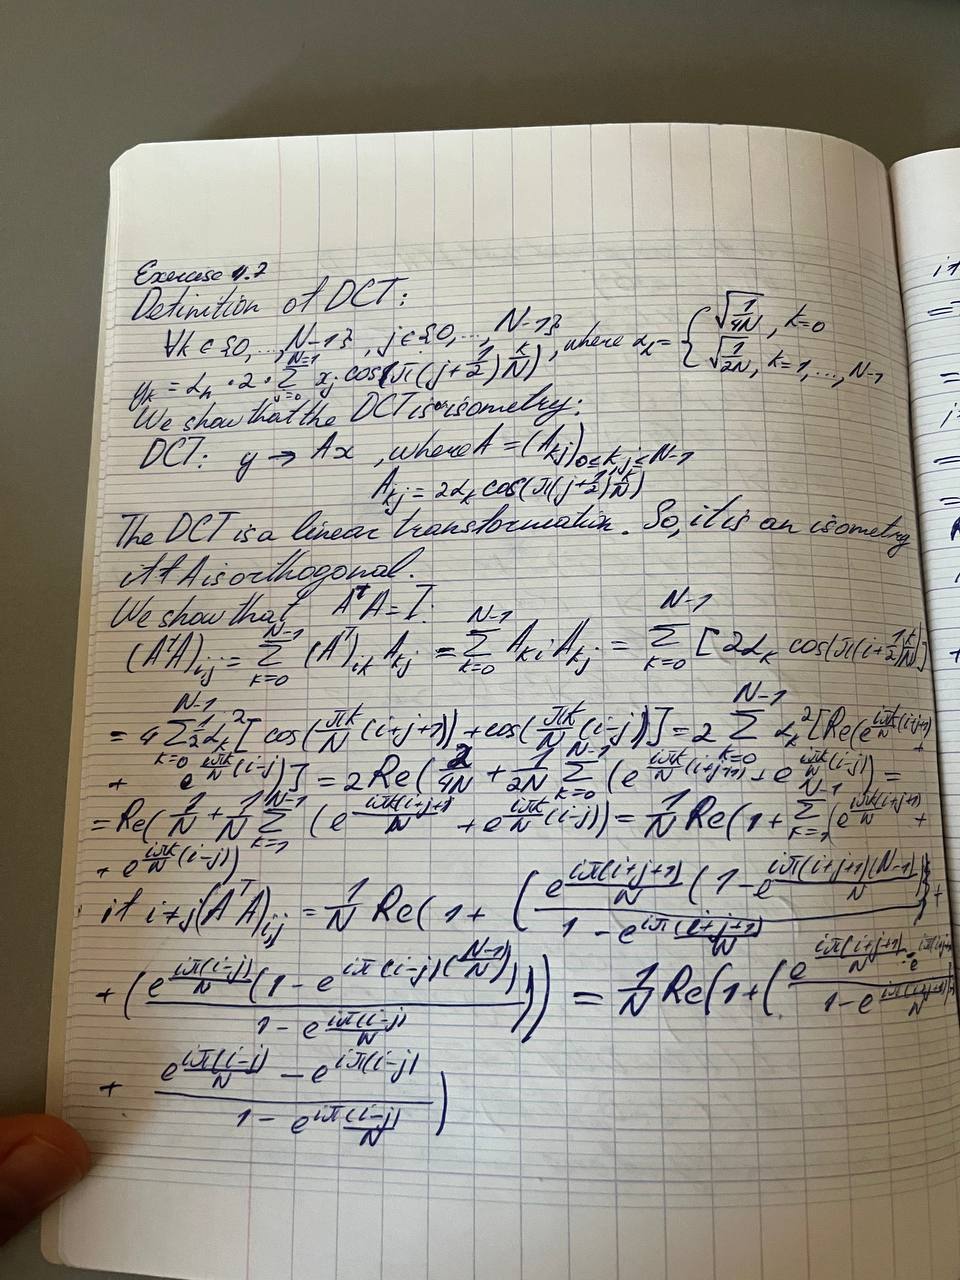 Exercise 1.7
Definition of DCT:
∀k ∈ {0,...,N-1}, j ∈ {0,...,N-1}, where α_k = { √(1/4N), k=0
√(1/2N), k=1,...,N-1
y_k = α_k · 2 · Σ_{j=0}^{N-1} x_j cos(π(j+1/2) k/N)
We show that the DCT is isometry:
DCT: y → Ax, where A = (A_kj)_{0≤k,j≤N-1}
A_kj = 2α_k cos(π(j+1/2) k/N)
The DCT is a linear transformation. So, it is an isometry
iff A is orthogonal.
We show that A^T A = I:
(A^T A)_ij = Σ_{k=0}^{N-1} (A^T)_ik A_kj = Σ_{k=0}^{N-1} A_ki A_kj = Σ_{k=0}^{N-1} [2α_k cos(π(i+1/2) k/N)]
= 4 Σ_{k=0}^{N-1} 1/2 α_k^2 [cos(πk/N (i+j+1)) + cos(πk/N (i-j))] = 2 Σ_{k=0}^{N-1} α_k^2 [Re(e^{iπk/N (i+j+1)} +
+ e^{iπk/N (i-j)})] = 2 Re(2/4N + 1/2N Σ_{k=0}^{N-1} (e^{iπk/N (i+j+1)} + e^{iπk/N (i-j)}) =
= Re(1/N + 1/N Σ_{k=1}^{N-1} (e^{iπk(i+j+1)/N} + e^{iπk/N (i-j)}) = 1/N Re(1 + Σ_{k=1}^{N-1} (e^{iπk/N (i+j+1)} +
+ e^{iπk/N (i-j)})
if i≠j (A^T A)_ij = 1/N Re(1 + (e^{iπ(i+j+1)/N} (1 - e^{iπ(i+j+1)(N-1)/N}) / (1 - e^{iπ(i+j+1)/N})) +
+ (e^{iπ(i-j)/N} (1 - e^{iπ(i-j)(N-1/N)}) / (1 - e^{iπ(i-j)/N}))) = 1/N Re(1 + (e^{iπ(i+j+1)/N} - e^{iπ(i+j+1)} / (1 - e^{iπ(i+j+1)/N})
+ (e^{iπ(i-j)/N} - e^{iπ(i-j)}) / (1 - e^{iπ(i-j)/N}))